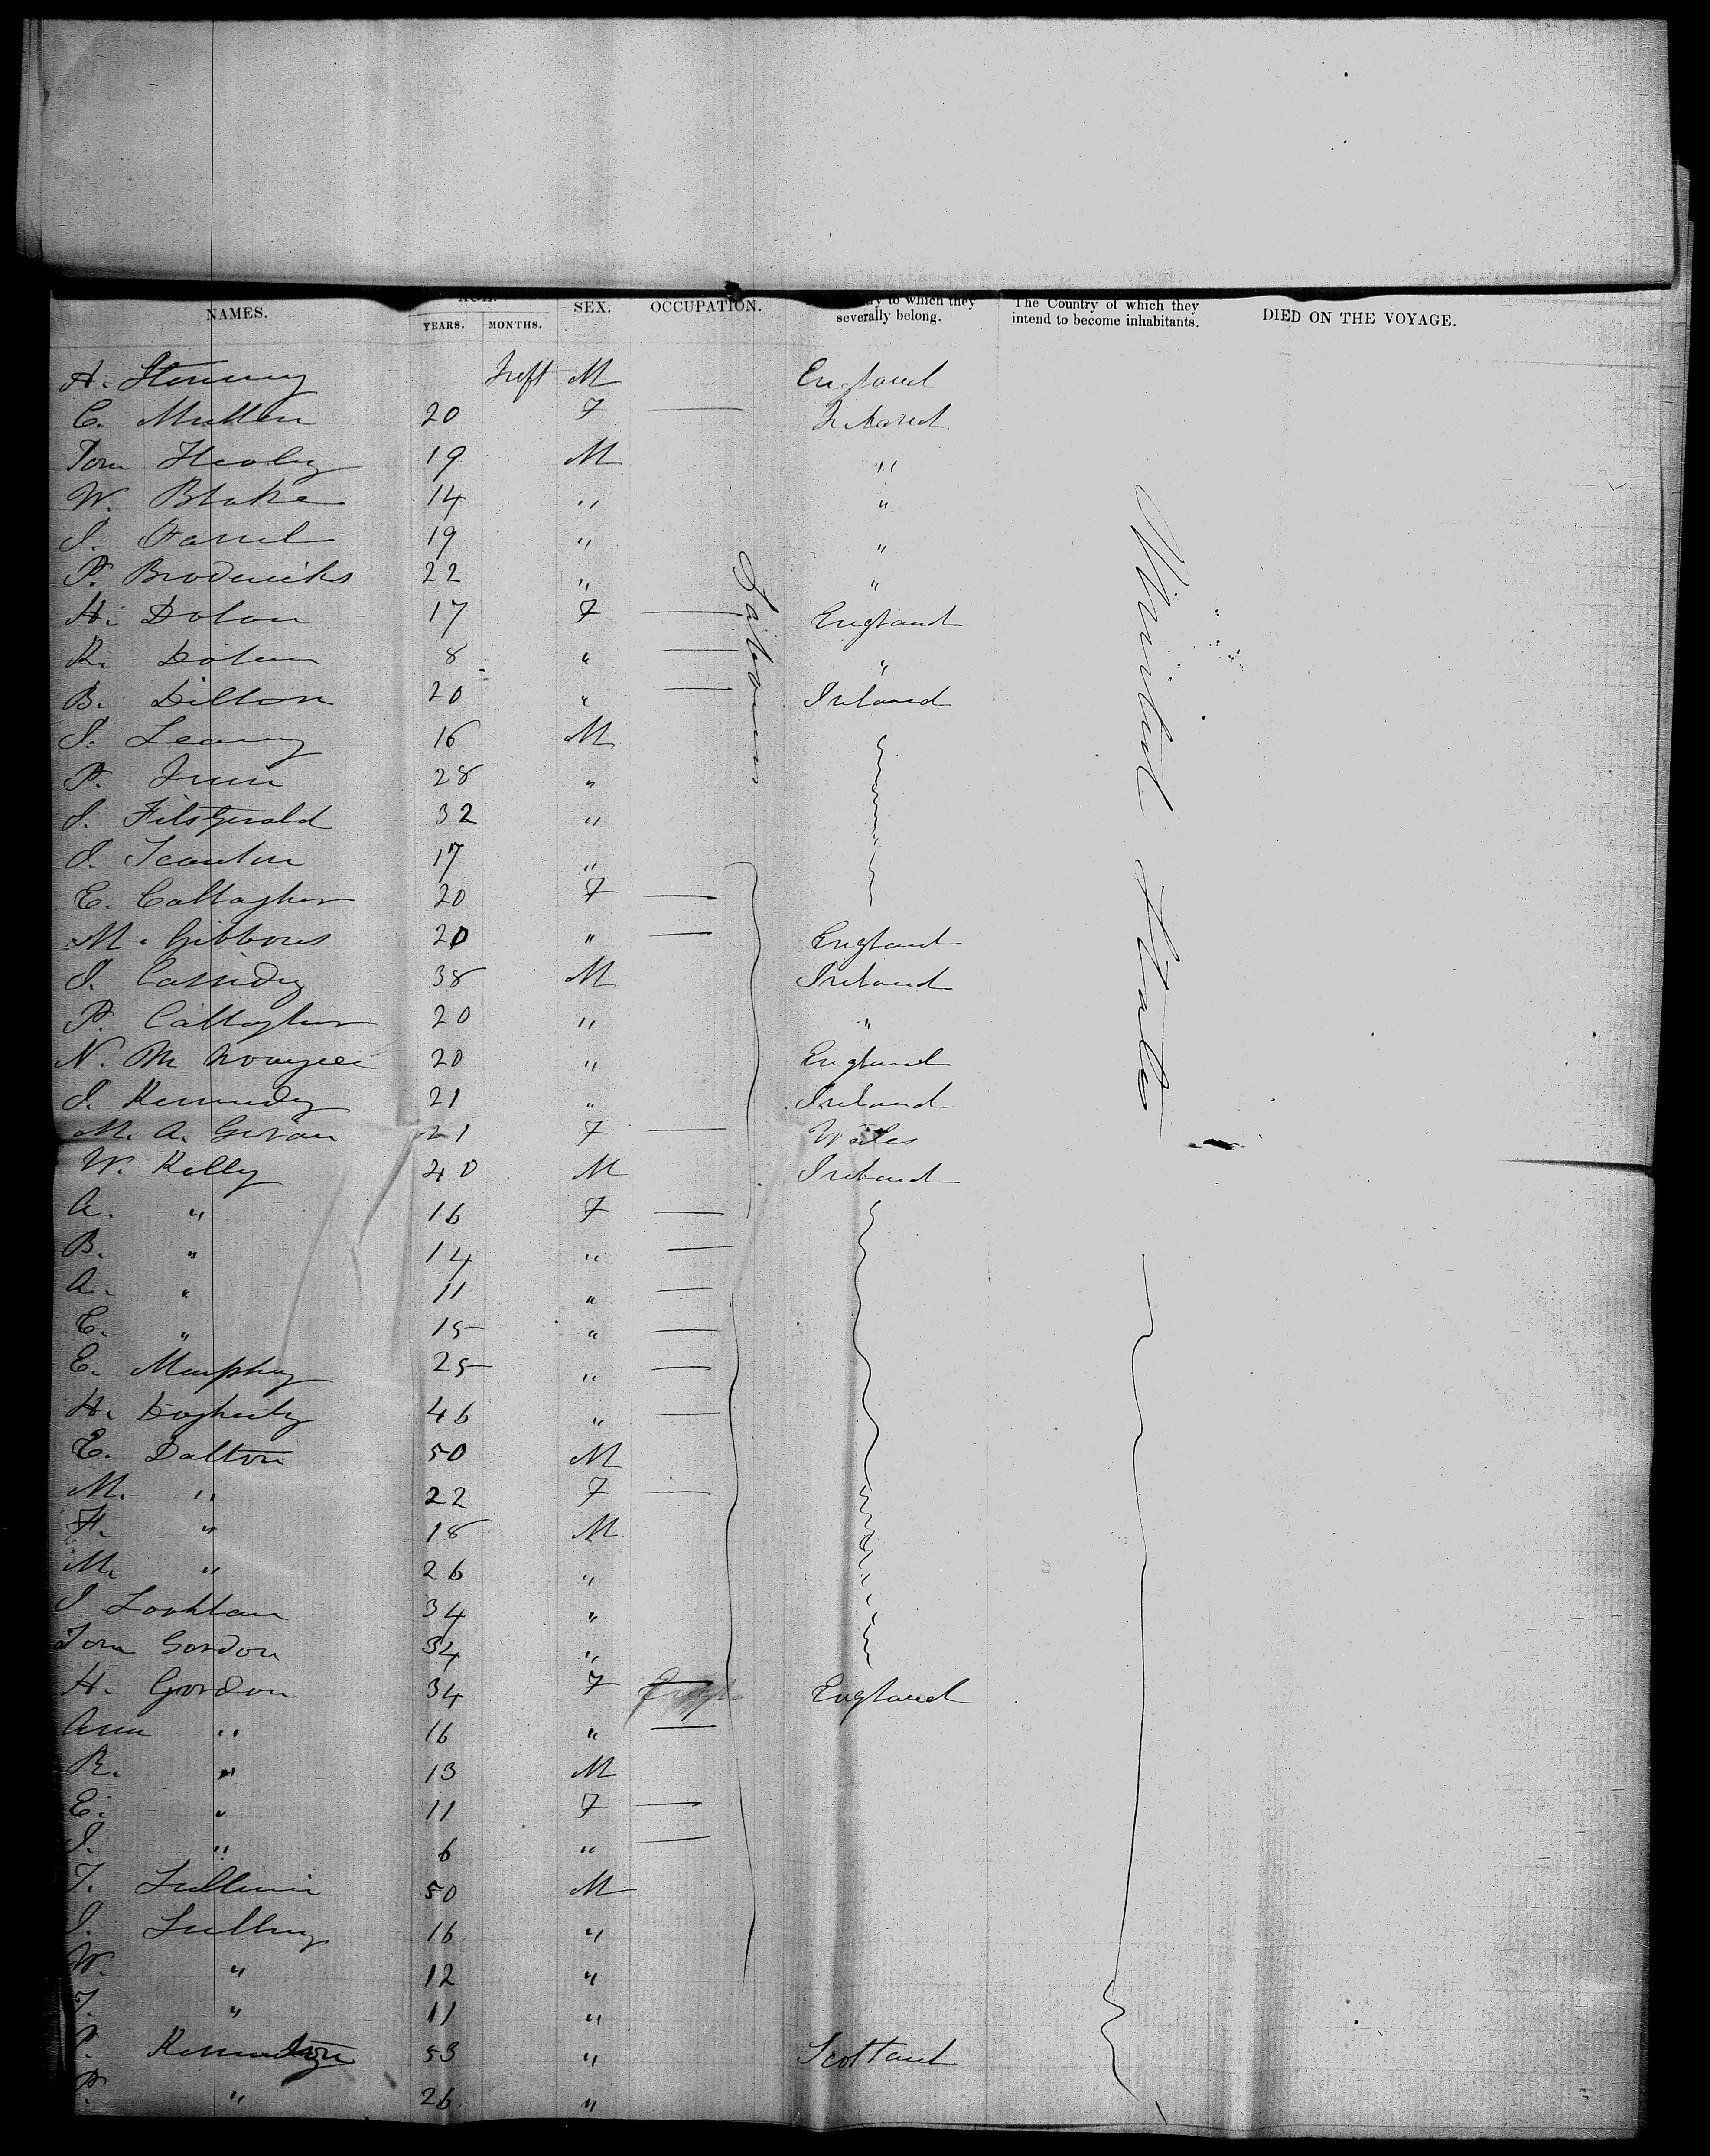 NAMES. AGE. YEARS. MONTHS. SEX. OCCUPATION. to which they severally belong. The Country of which they intend to become inhabitants. DIED ON THE VOYAGE.
A. Inft M England
C. Mullen 20 F — Ireland
Tom Healy 19 M "
W. Blake 14 " "
J. Farrel 19 " "
P. Brodericks 22 " "
H. Dolan 17 F — England
K. Dolan 8 " — "
B. Dillon 20 " — Ireland
J. Leamy 16 M
P. 28 "
J. Fitsgerald 32 "
J. Scanlon 17 "
E. Callagher 20 F —
M. Gibbons 20 " — England
J. Cassidy 38 M Ireland
P. Callagher 20 " "
N. 20 " England
J. Kennedy 21 " Ireland
M. A. 21 F — Wales
W. Kelly 40 M Ireland
A. " 16 F —
B. " 14 " —
A. " 11 " —
E. " 15 " —
E. Murphy 25 " —
H. Dogherty 46 " —
E. Dalton 50 M
M. " 22 F —
F. " 18 M
M. " 26 "
J 34 "
Tom Gordon 34 "
H. Gordon 34 F — England
Ann " 16 " —
R. " 13 M
E. " 11 F —
J. " 6 " —
T. 50 M
J. 16 "
W. " 12 "
T. " 11 "
P. 53 " Scotland
P. " 26 "
Labourers
United States